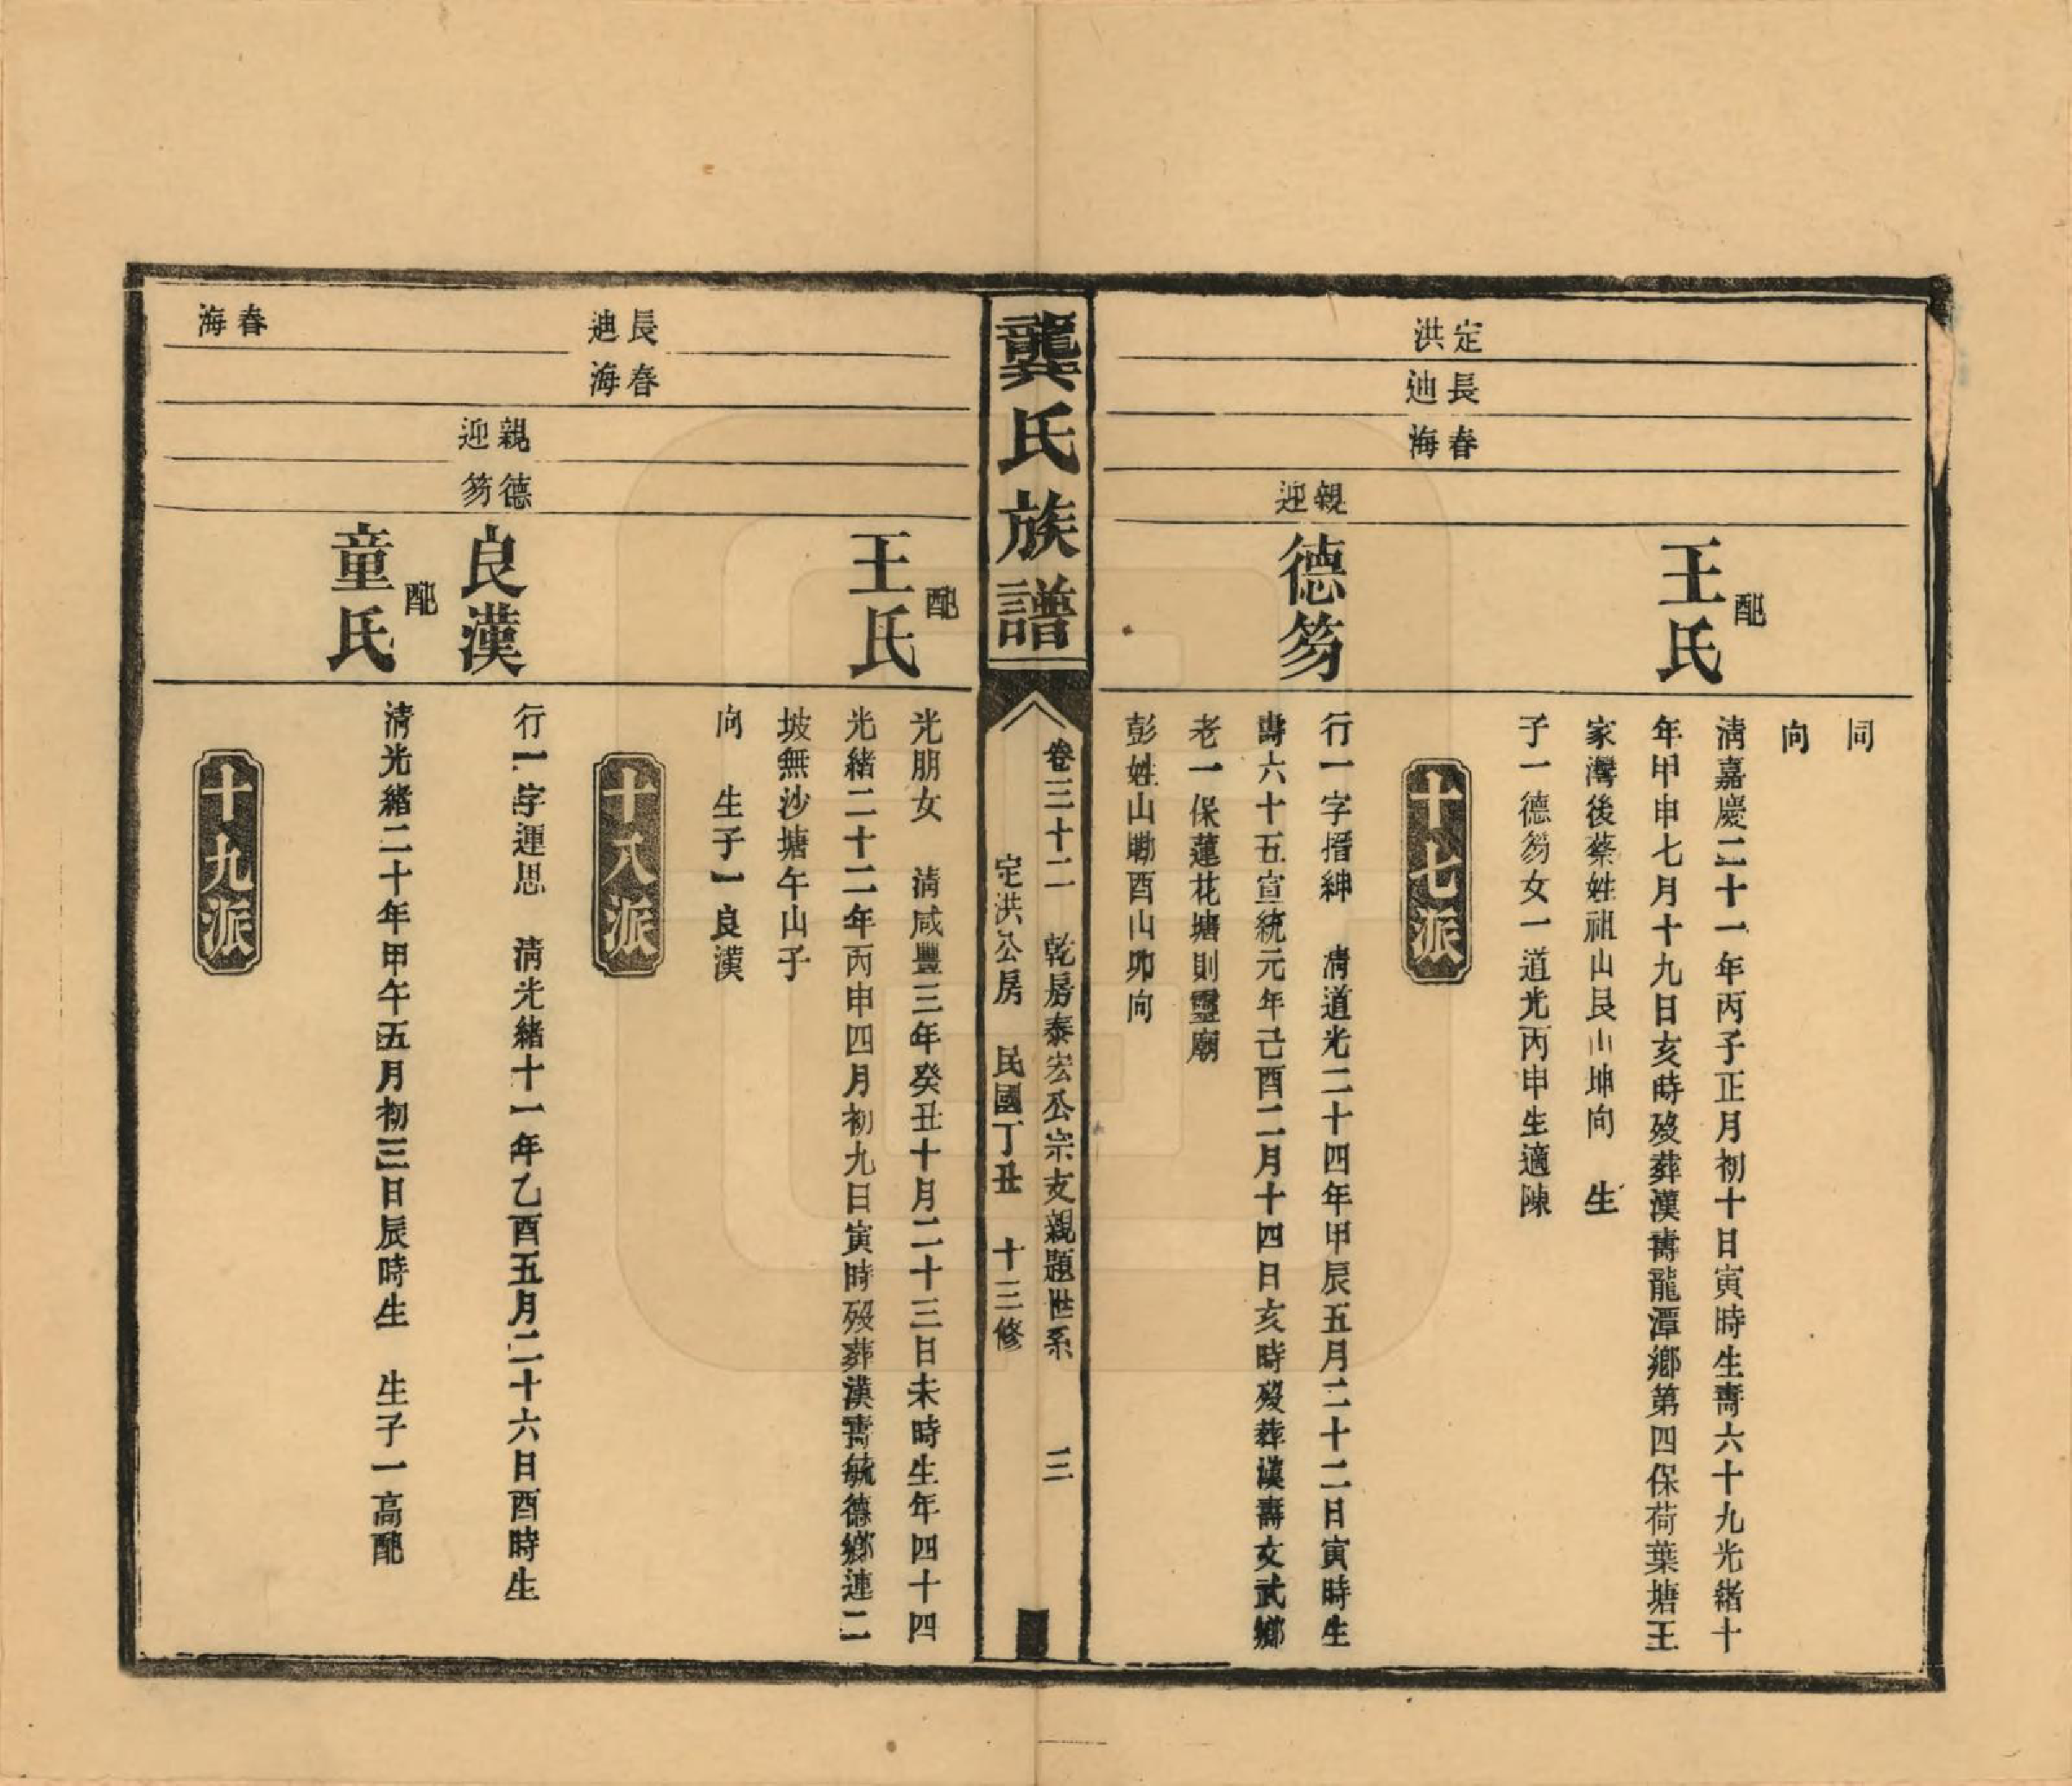 同
向
配
王氏
清嘉慶二十一年丙子正月初十日寅時生壽六十九光緒十
年甲申七月十九日亥時歿葬漢壽龍潭鄉第四保荷葉塘王
家灣後蔡姓祖山艮山坤向　生
子一德笏女一道光丙申生適陳
定洪
長迪
春海
十七派
親迎
德笏
行一字搢紳　清道光二十四年甲辰五月二十二日寅時生
壽六十五宣統元年己酉二月十四日亥時歿葬漢壽文武鄉
老一保蓮花塘則靈廟
彭姓山酉山卯向
龔氏族譜
卷三十二　乾房泰宏公宗支親題世系　三
定洪公房　民國丁丑　十三修
配
王氏
光朋女　清咸豐三年癸丑十月二十三日未時生年四十四
光緒二十二年丙申四月初九日寅時歿葬漢壽毓德鄉連二
坡無沙塘午山子
向　生子一良漢
長迪
春海
十八派
親迎
德笏
良漢
行一字運思　清光緒十一年乙酉五月二十六日酉時生
配
童氏
清光緒二十年甲午五月初三日辰時生　生子一高配
春海
十九派